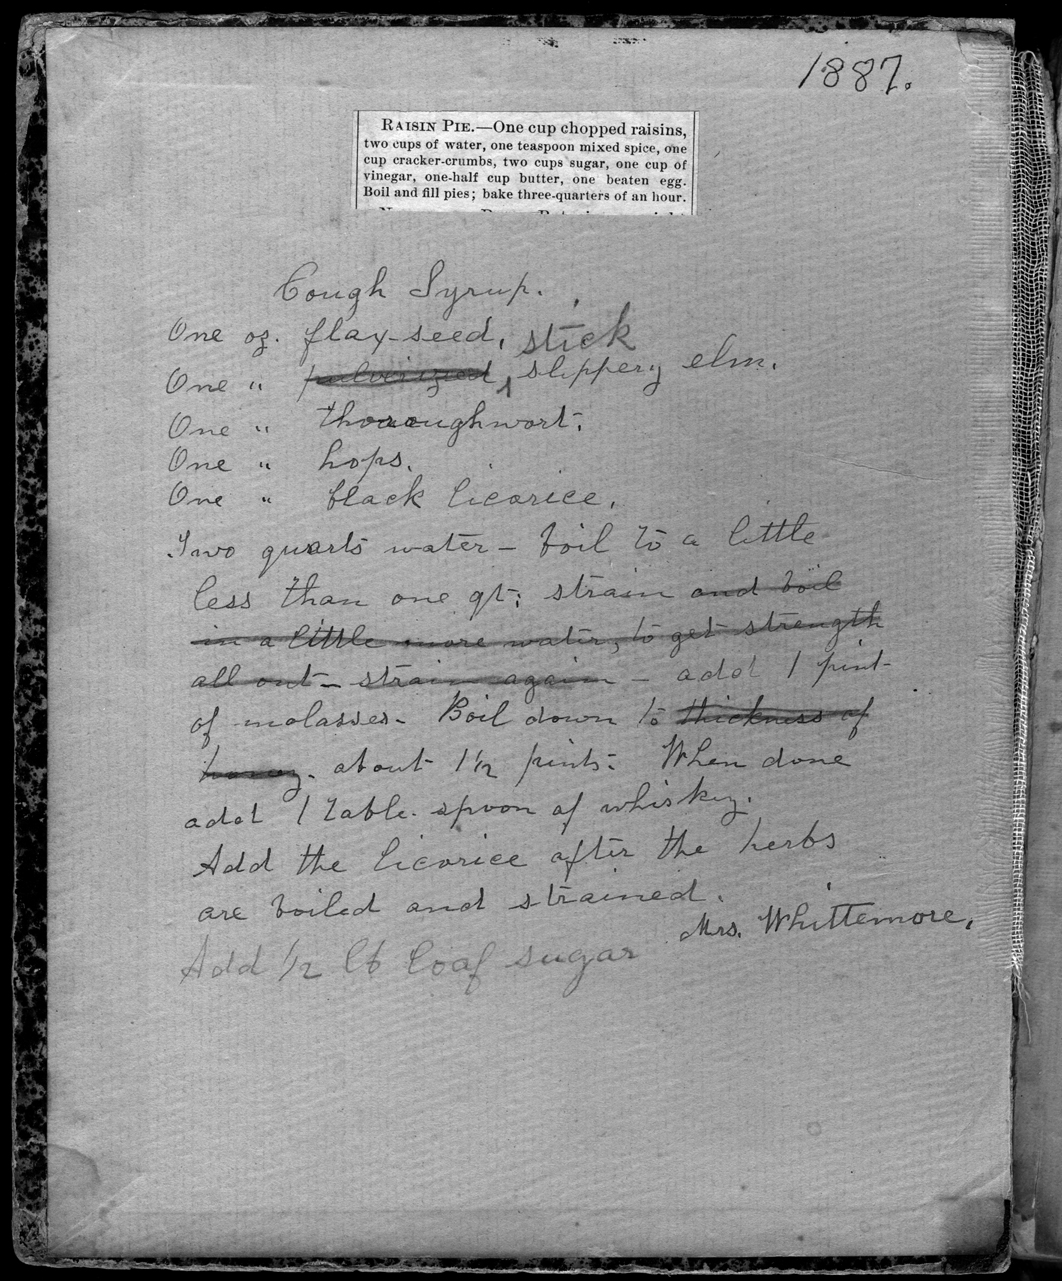 1887.
RAISIN PIE.—One cup chopped raisins,
two cups of water, one teaspoon mixed spice, one
cup cracker-crumbs, two cups sugar, one cup of
vinegar, one-half cup butter, one beaten egg.
Boil and fill pies; bake three-quarters of an hour.
Cough Syrup.
One oz. flax-seed,
One " pulverized, stick slippery elm.
One " thoroughwort.
One " hops.
One " black licorice.
Two quarts water – boil to a little
less than one qt; strain and boil
in a little more water, to get strength
all out – strain again – add 1 pint
of molasses – Boil down to thickness of
honey. about 1 1/2 pints. When done
add 1 table-spoon of whiskey.
Add the licorice after the herbs
are boiled and strained.
Mrs. Whittemore.
Add 1/2 lb loaf sugar